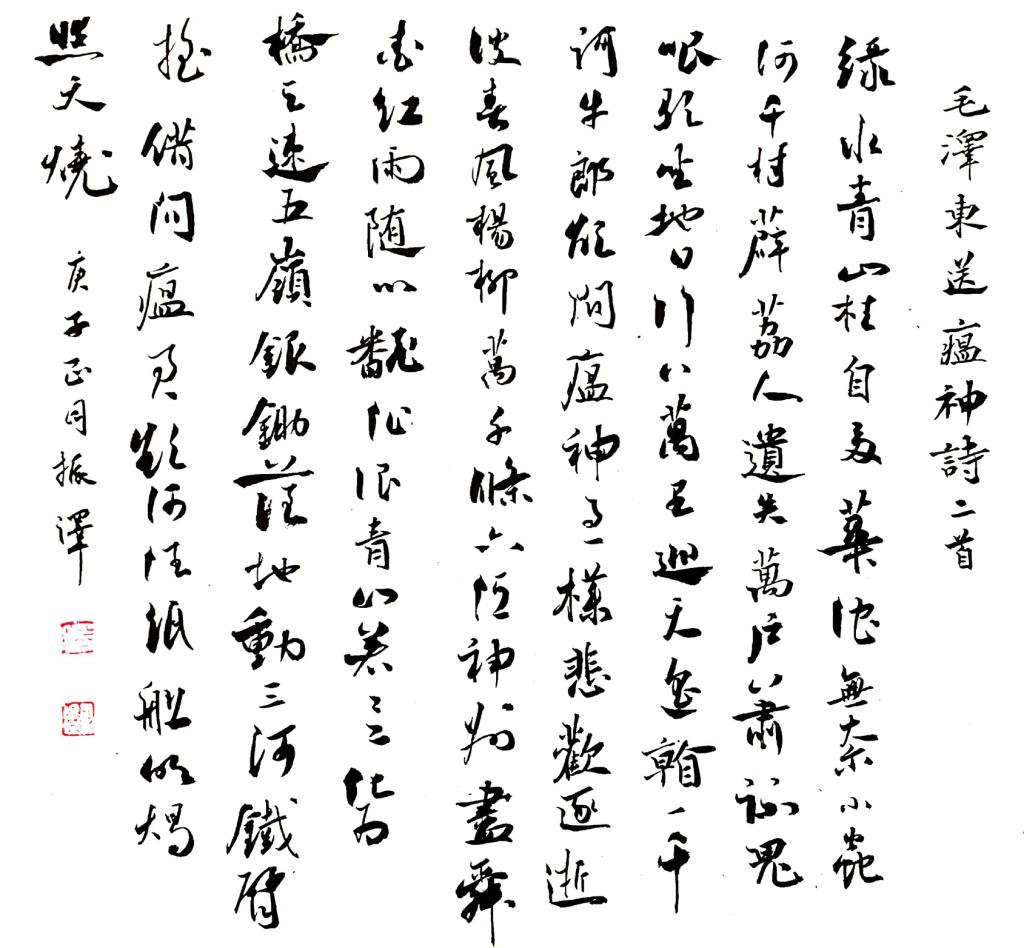 毛澤東送瘟神詩二首
綠水青山枉自多華佗無奈小蟲
何千村薜荔人遺矢萬戶蕭疏鬼
唱歌坐地日行八萬里巡天遙看一千
河牛郎欲問瘟神事一樣悲歡逐逝
波春風楊柳萬千條六億神州盡舜
堯紅雨隨心翻作浪青山着意化為
橋天連五嶺銀鋤落地動三河鐵臂
搖借問瘟君欲何往紙船明燭
照天燒
庚子正月振澤